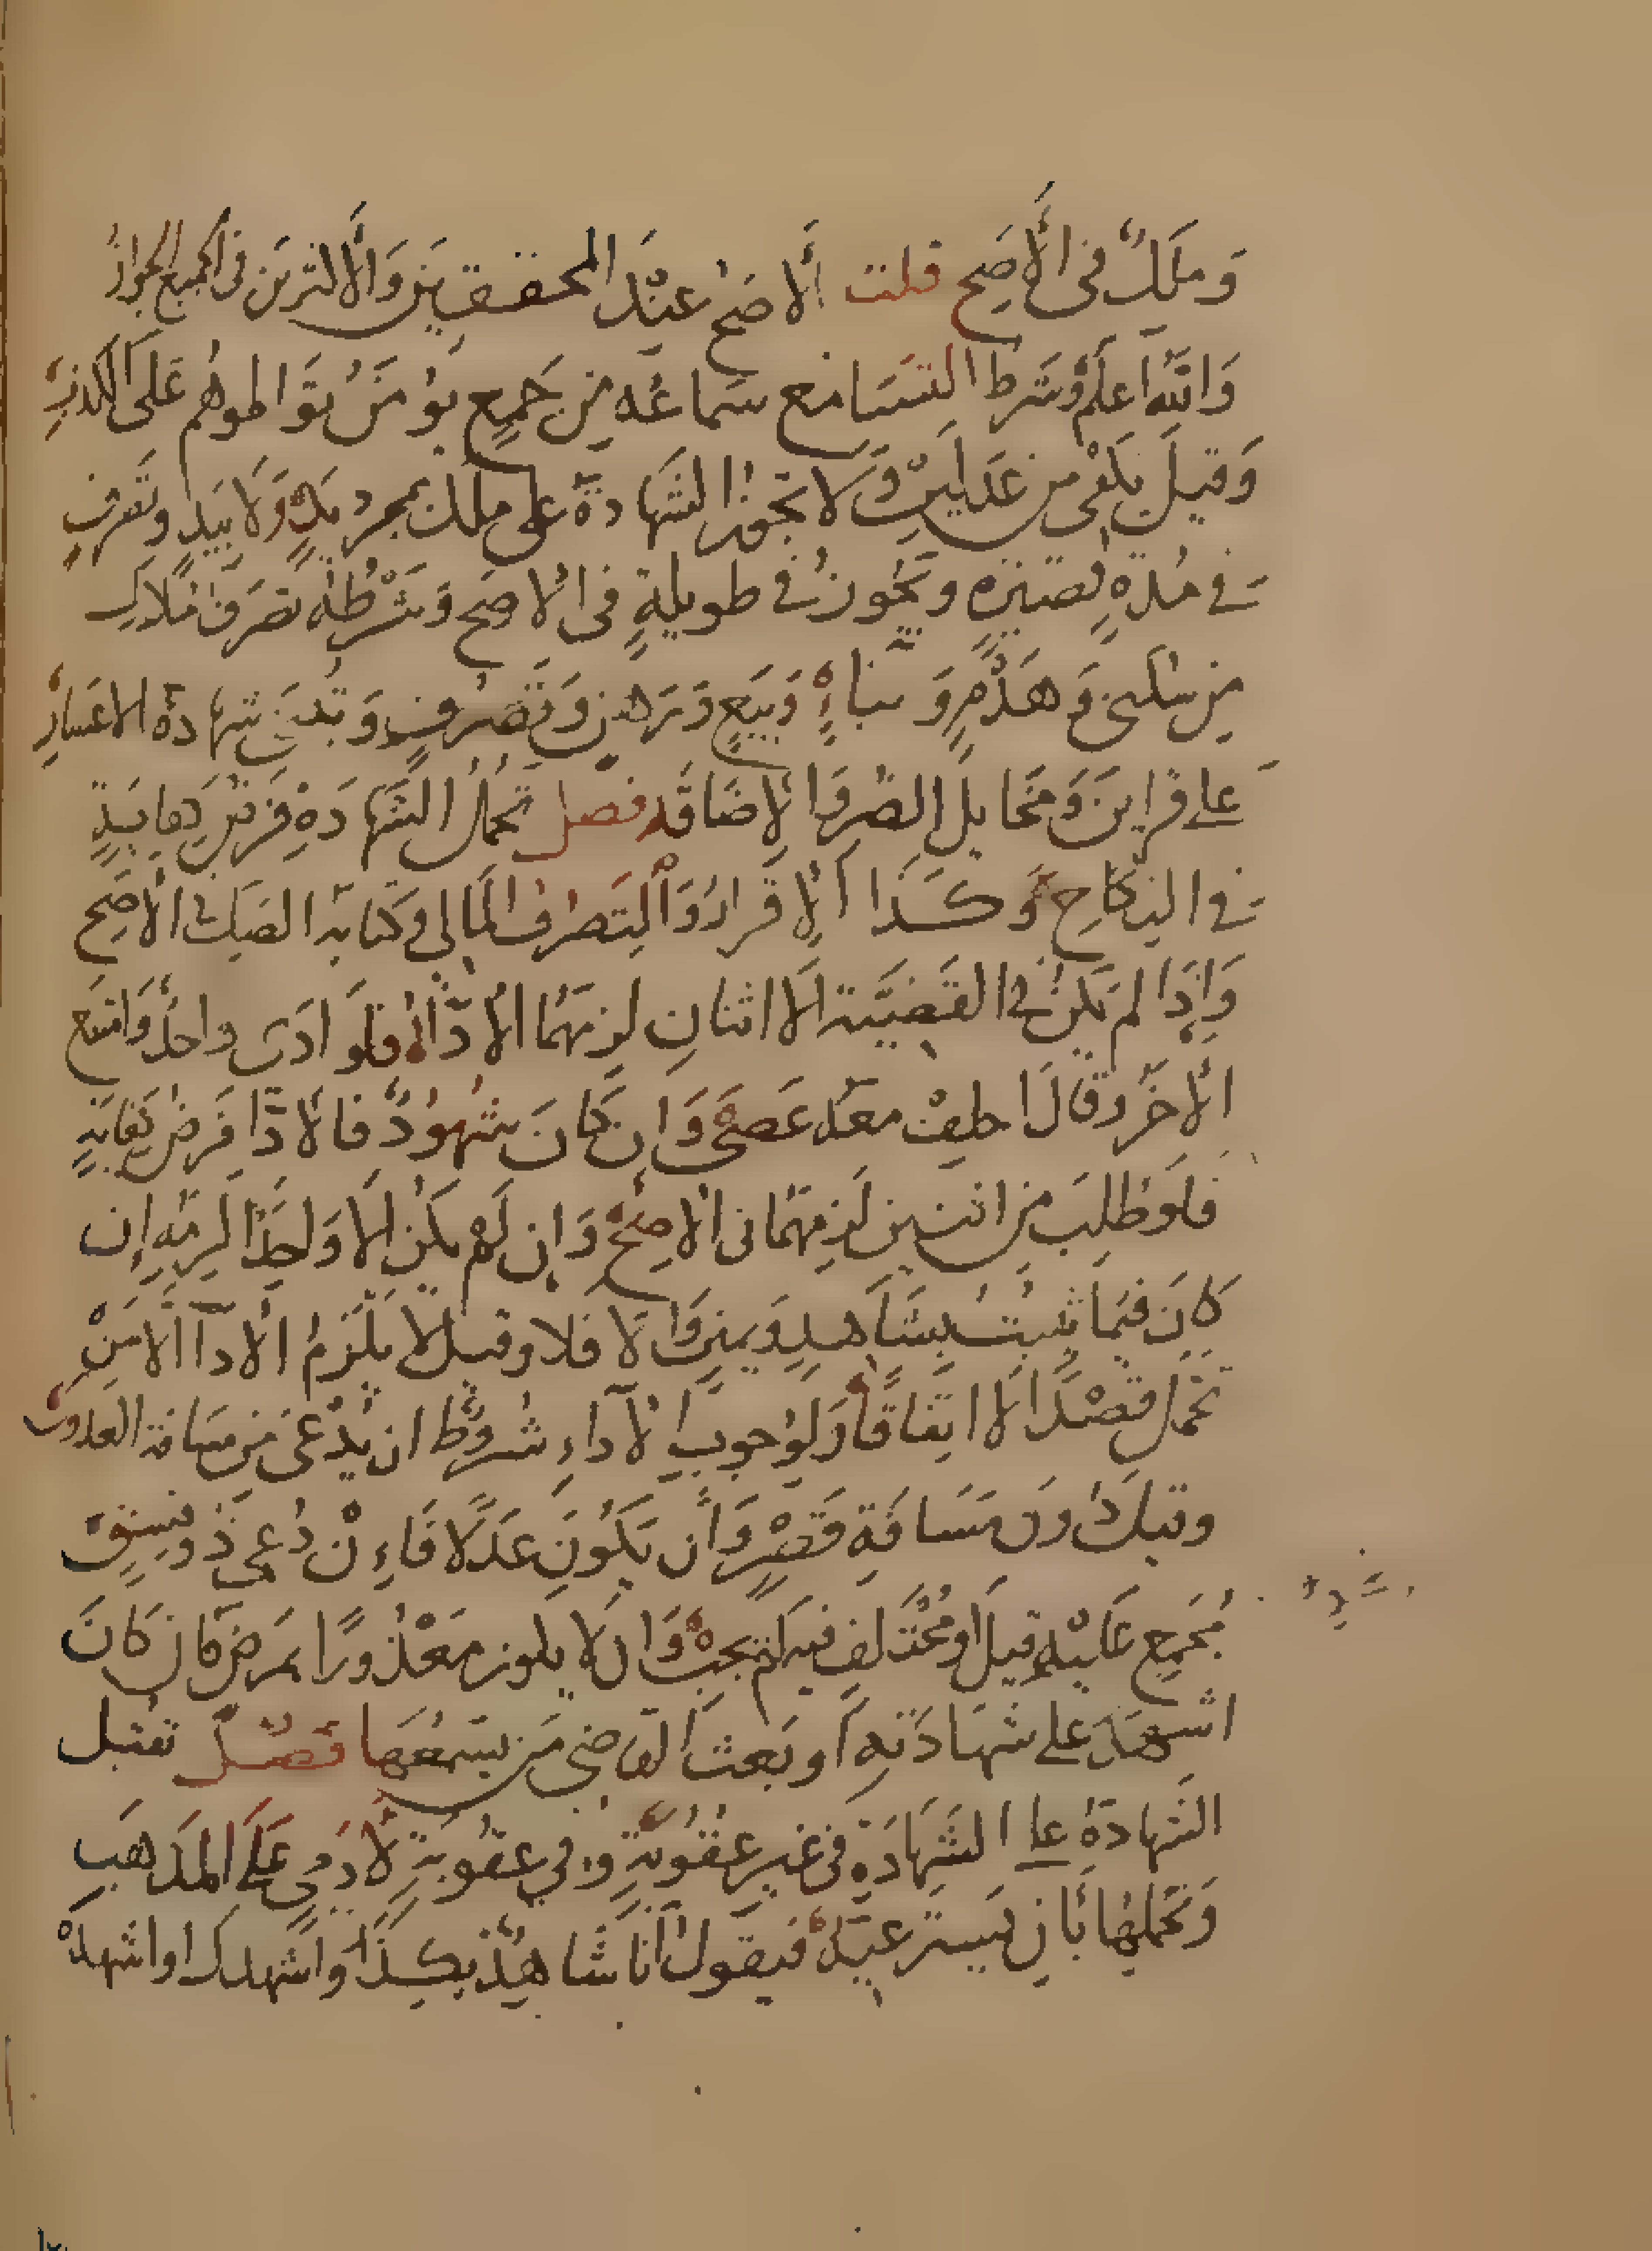 وَمَلَكٌ في الأَصَحِ قلت الأَصَحُ عِنْدَ المحققينَ وَالأَكثرينَ في الجميع الجوازُ
وَاللهُ اَعلم وَشَرط التسَامع سَمَاعُه مِن جَمعٍ يُؤمَنُ تَوَاطؤهُم عَلى الكَذِبِ
وَقيلَ يَكفي من عَدلينِ وَلا تجوزُ الشهَادةُ على ملك بمجردِ يَدٍ وَلا بِيَدٍ وتَصَرفٍ
في مُدةٍ قَصيرَةٍ وتَجُوزُ في طويلةٍ في الاَصح وَشَرْطُهُ تصَرفُ مُلاكٍ
مِن سُكنى وَهَدْمٍ وَبناءٍ وَبَيعٍ وَرَهنٍ وَتَصَرفٍ وَتُبنى شهادةُ الاعسَارِ
عَلى قراينَ وَمَخَايل الضُرِ وَالاِضَاقَةِ فصل تحملُ الشَهَادَةِ فَرضُ كِفايَةٍ
في النِكَاحِ وَكَذا الاِقرارُ وَالتَصَرفُ المَالي وَكتابة الصَك في الاَصَح
وَاِذَا لم يَكُنْ في القَضِيَّة الاَ اثنانِ لزمَهُمَا الاَدَاءُ فلَو ادَى واحدٌ وَامتنع
الاَخَرُ وقالَ احلِفْ معَهُ عَصَى وَاِن كَانَ شهُودٌ فالاَدَا فَرضُ كِفايَةٍ
فَلَو طُلِبَ مِن اثنينِ لَزِمهُمَا في الاَصَحِّ وَاِن لَم يكُن اِلا وَاحِدٌ لَزِمَهُ إِن
كانَ فيمَا يثبتُ بشَاهدٍ وَيمينٍ وَالاَ فَلا وقيل لا يَلزَمُ الاَداَ الاَّ مَنْ
تَحَمَّل قَصْدًا لاَ اتفاقًا وَلوُجوبِ الاَداءِ شُروُط ان يُدْعَى مِن مسَافة العدوى
وقيلَ دُونَ مَسَافَةِ قَصْرٍ وَأن يَكُونَ عَدَلا فَإِنْ دُعى ذُو فِسقٍ
مُجمَعٍ عَلَيْهِ قيلَ او مُختَلفٍ فيه لم يجبْ وَان لا يكونَ مَعْذُورًا بمَرَضٍ فان كَانَ
اشهَدَ على شَهَادَتهِ اَو بَعثَ القاضى مَن يسَمعُهَا فَصْلٌ تقبَل
الشَهادةُ على الشَهَادَةِ في غيرِ عقُوبَةٍ وفي عقوُبَةٍ لآدَمىٍ عَلَى المذهَبِ
وَتَحَمُلهَا بأن يَسترعيَهُ فيقولُ اَنَا شَاهِدٌ بكذا وَاُشهدك او اشهدْ